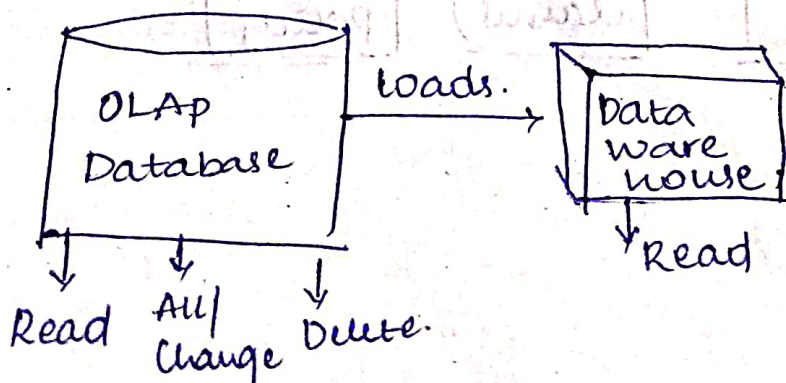 OLAp
Database
loads.
Data
ware
house
Read
All/
Change
Delete.
Read